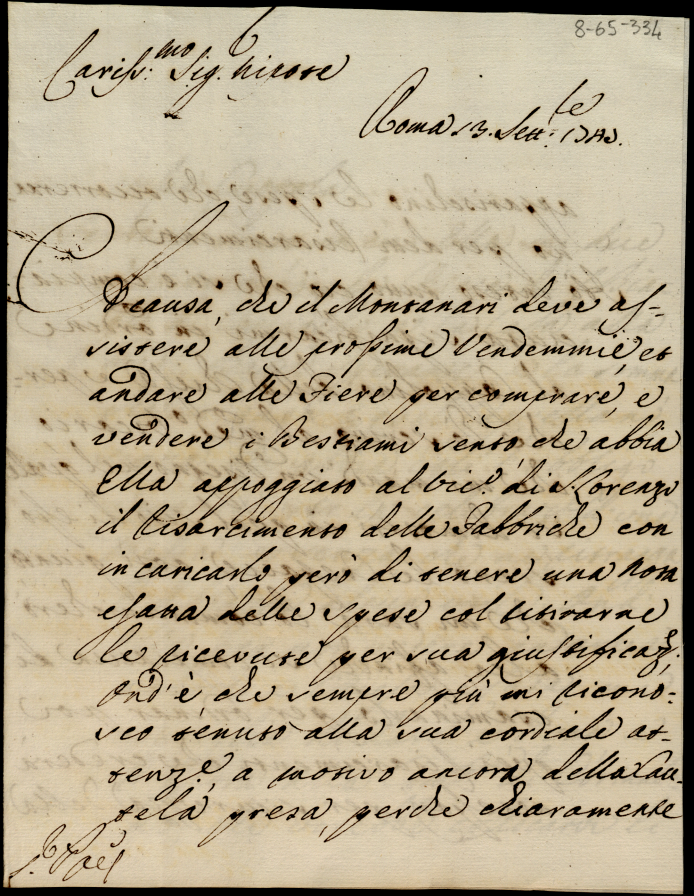 8-65-334
Cariss:mo Sig. Nipote
Roma 13. Sett:te
A causa, che il Montanari deve as-
sistere alle prossime Vendemmie, et
andare alle Fiere per comprare, e
vendere i Bestiami sento, che abbia
Ella appoggiato al Vic.o di S. Lorenzo
il risarcimento delle Fabbriche con
incaricarlo però di tenere una nota
esatta delle spese col ritirarne
le ricevute per sua giustificaz.e,
Ond'è, che sempre più mi ricono-
sco tenuto alla sua cordiale at-
tenz.e, a motivo ancora della Cau-
tela presa, perche chiaramente